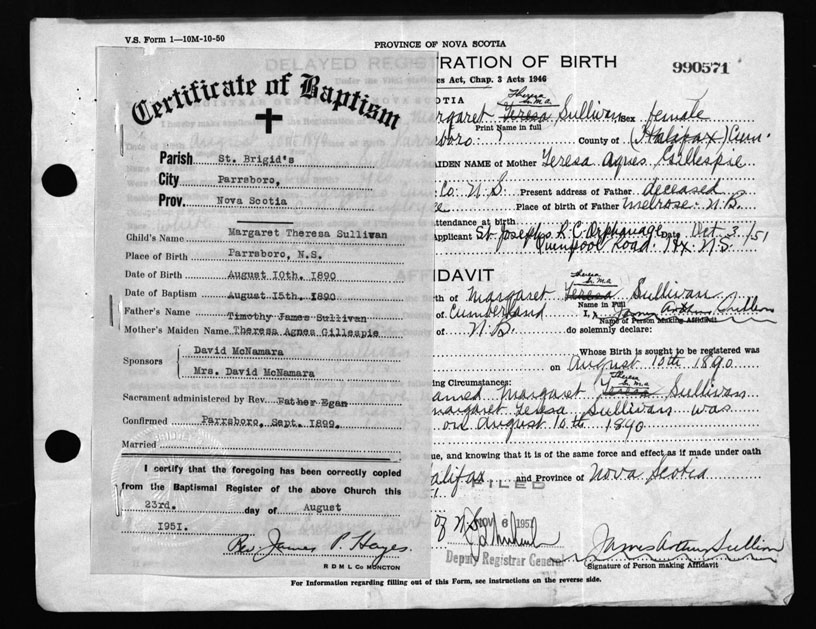 V.S. Form 1—10M-10-50
PROVINCE OF NOVA SCOTIA
DELAYED REGISTRATION OF BIRTH
990571
cs Act, Chap. 3 Acts 1946
Certificate of Baptism
Parish St. Brigid's
City Parrsboro,
Prov. Nova Scotia
Child's Name Margaret Theresa Sullivan
Place of Birth Parrsboro, N.S.
Date of Birth August 10th. 1890
Date of Baptism August 15th. 1890
Father's Name Timothy James Sullivan
Mother's Maiden Name Theresa Agnes Gillespie
Sponsors David McNamara
Mrs. David McNamara
Sacrament administered by Rev. Father Egan
Confirmed Parrsboro, Sept. 1899.
Married
I certify that the foregoing has been correctly copied
from the Baptismal Register of the above Church this
23rd. day of August
1951.
Rev. James P. Hayes.
R D M L Co MONCTON
SCOTIA
Theresa
argaret Teresa Sullivan Sex female
Print Name in full
sboro County of (Halifax) Cum.
MAIDEN NAME of Mother Teresa Agnes Gillespie
Co. N.S. Present address of Father deceased
Place of birth of Father Melrose. N.B.
Attendance at birth
Applicant St. Joseph's R.C. Orphanage Date Oct 3/51
Quinpool Road. Hx. N.S.
AFFIDAVIT
Theresa
th of Margaret Teresa Sullivan
Name in Full
of Cumberland I, James Arthur Sullivan
Name of Person Making Affidavit
of N.B. do solemnly declare:
Whose Birth is sought to be registered was
on August 10th 1890
ing Circumstances: Theresa
amed Margaret Teresa Sullivan
margaret Teresa Sullivan was
on August 10th 1890
ue, and knowing that it is of the same force and effect as if made under oath
alifax and Province of Nova Scotia
FILED
of N.S. NOV 6 1951
Deputy Registrar General
James Arthur Sullivan
Signature of Person making Affidavit
For Information regarding filling out of this Form, see instructions on the reverse side.